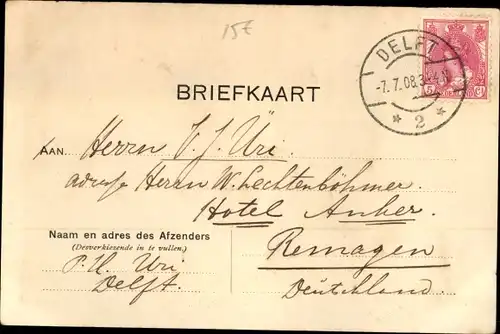 15€
DELFT
-7.7.08.3-4.N
* 2 *
5 Ct
BRIEFKAART
AAN Herrn V. J. Üri.
adresse Herrn W. Lechtenböhmer.
Hotel Anker.
Remagen
Deutschland.
Naam en adres des Afzenders
(Desverkiezende in te vullen.)
P. U. Uri
Delft.